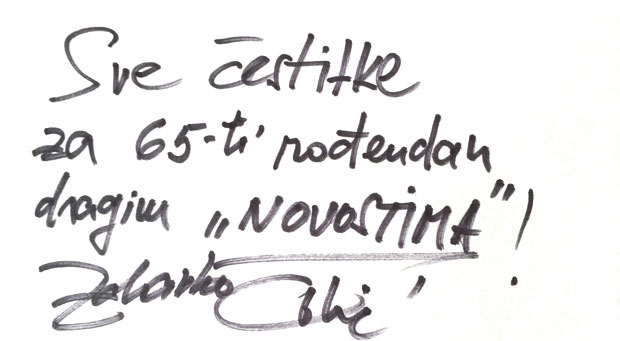 Sve čestitke
za 65-ti rođendan
dragim „NOVOSTIMA"!
Zdravko Čolić